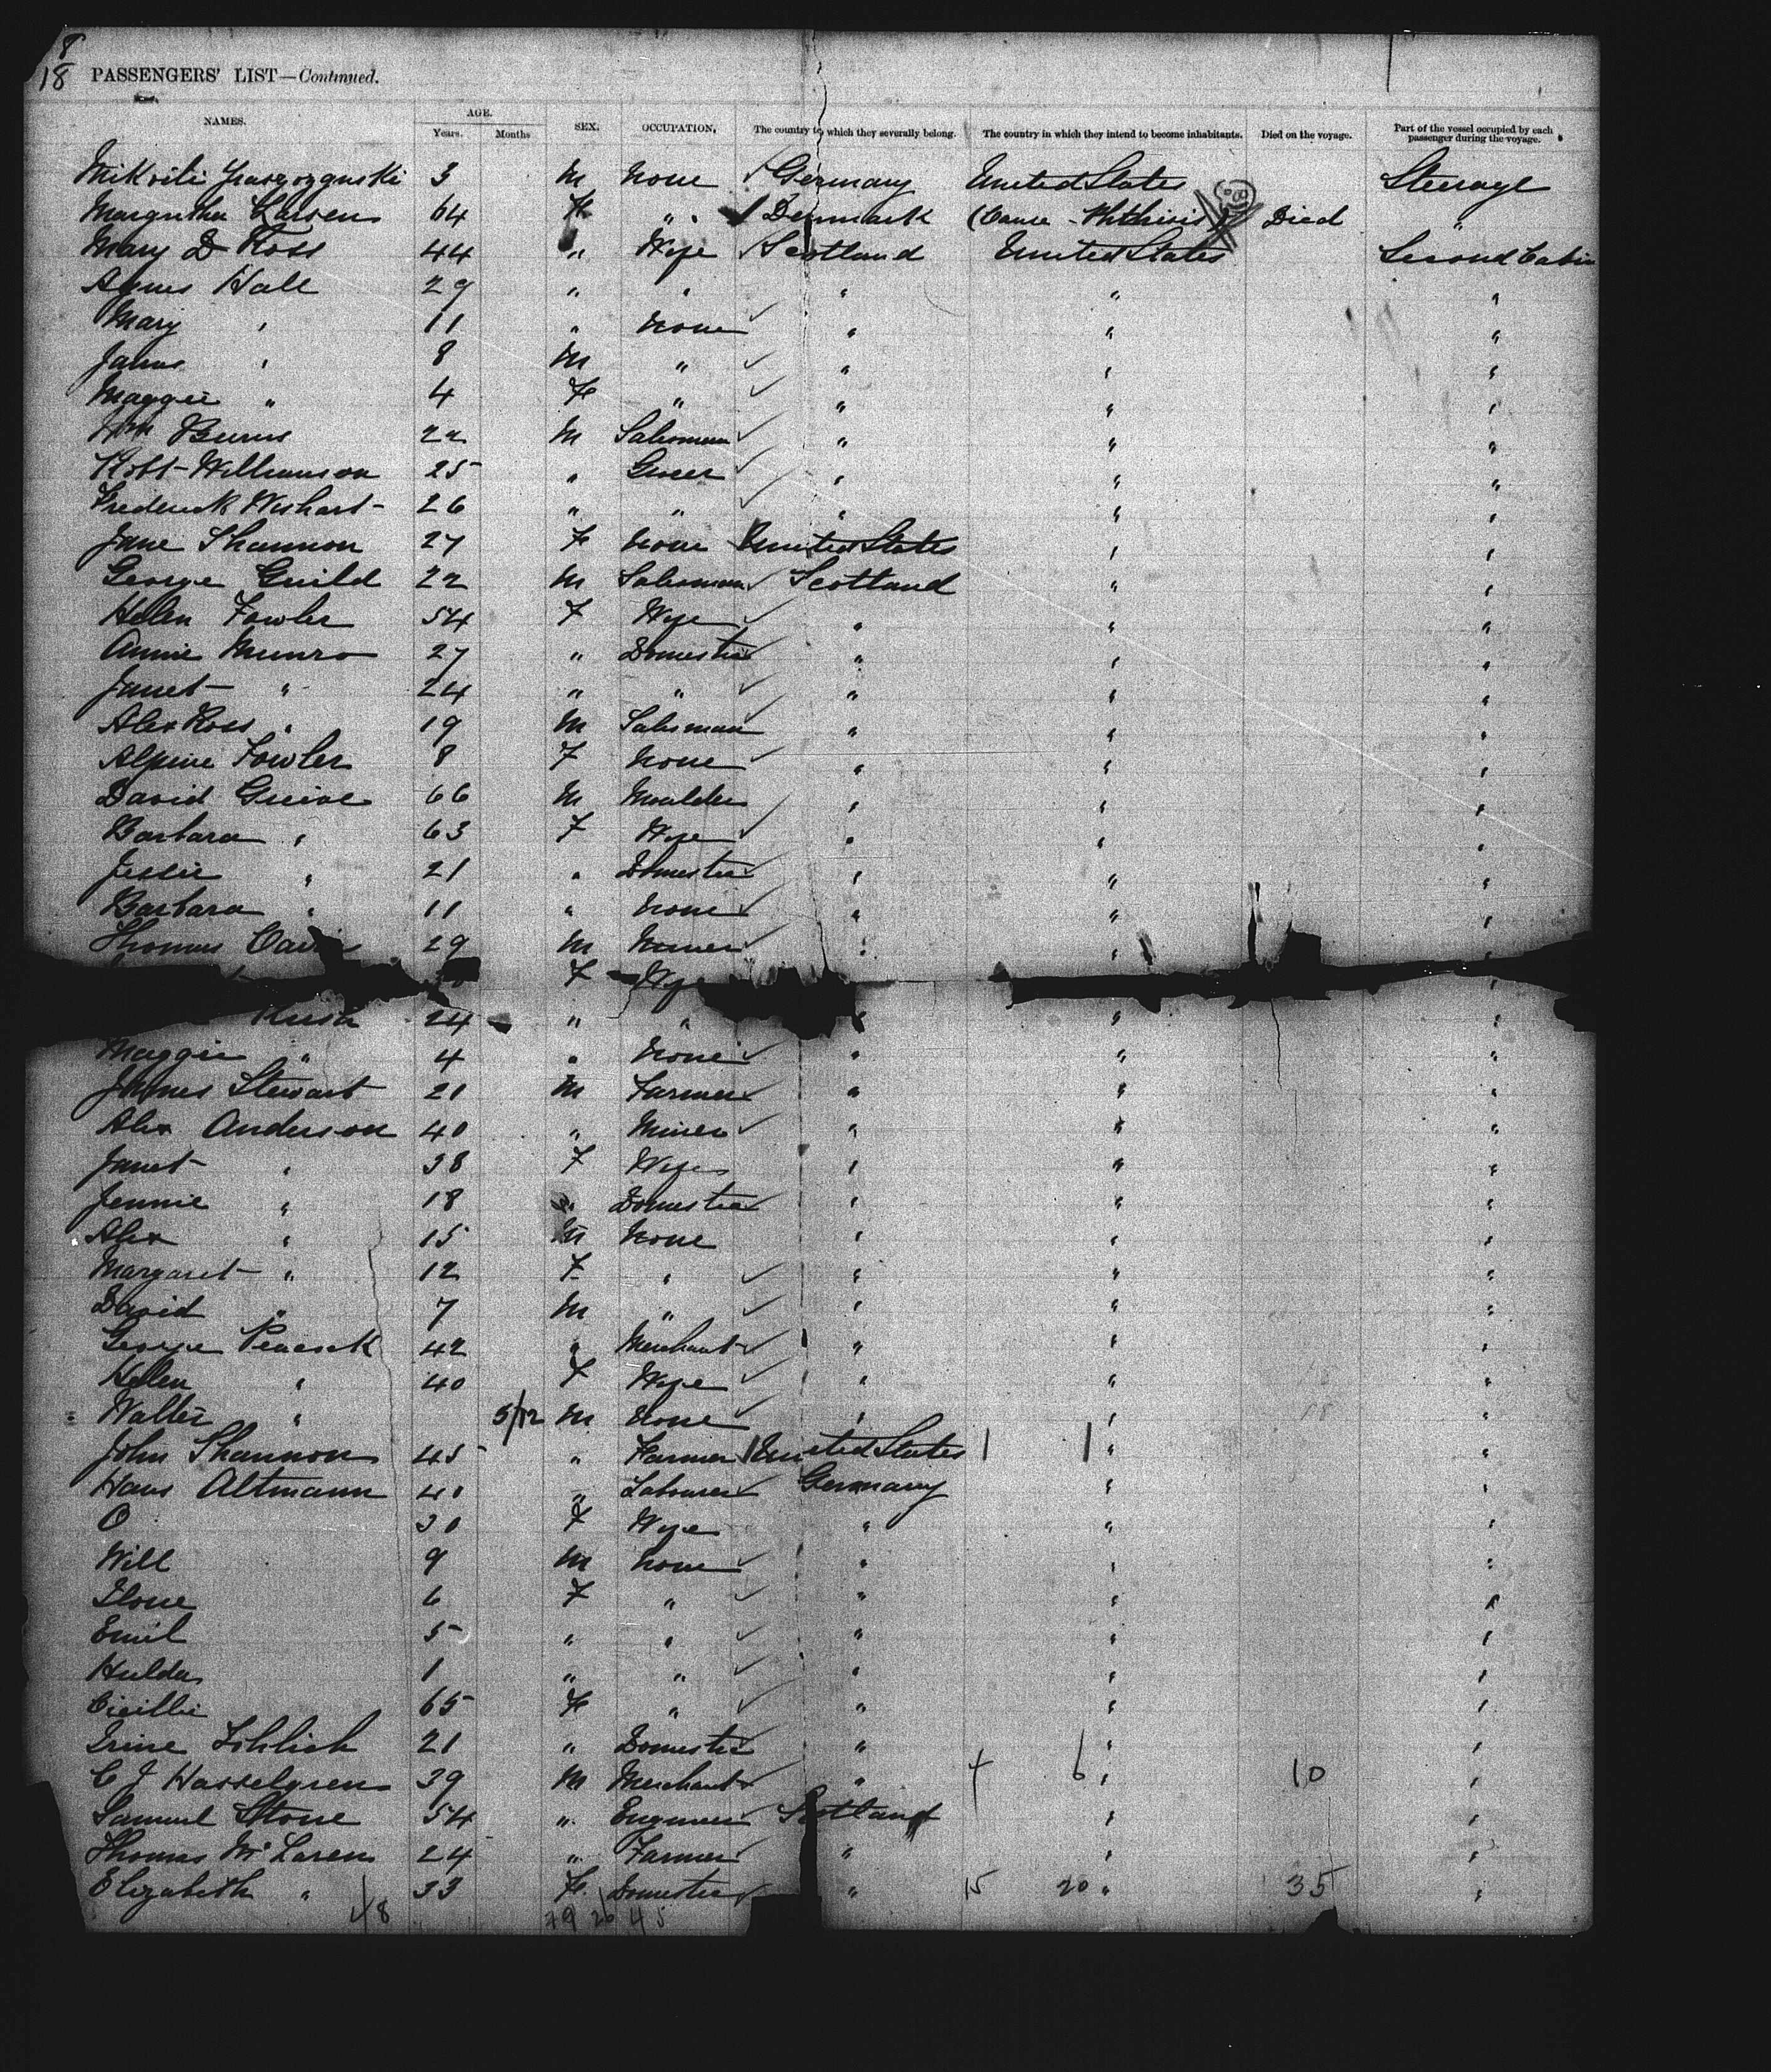 8
18 PASSENGERS' LIST—Continued.
NAMES. AGE. Years. Months SEX. OCCUPATION. The country to which they severally belong. The country in which they intend to become inhabitants. Died on the voyage. Part of the vessel occupied by each passenger during the voyage.
3 M None Germany United States Steerage
Larsen 64 F " Denmark (Cause - Phthisis) Died "
Mary D Ross 44 " Wife Scotland United States Second Cabin
Agnes Hall 29 " " " " "
Mary " 11 " None " " "
James " 8 M " " " "
Maggie " 4 F " " " "
Wm Burns 22 M Salesman " " "
Robt Williamson 25 " Grocer " " "
Frederick Wishart 26 " " " " "
Jane Shannon 27 F None United States " "
George Guild 22 M Salesman Scotland " "
Helen Fowler 54 F Wife " " "
Annie Munro 27 " Domestic " " "
Janet " 24 " " " " "
Alex Ross " 19 M Salesman " " "
Alpine Fowler 8 F None " " "
David Grieve 66 M Moulder " " "
Barbara " 63 F Wife " " "
Jessie " 21 " Domestic " " "
Barbara " 11 " None " " "
Thomas 29 M " " "
F Wife "
24 " " " " "
Maggie " 4 " None " " "
James Stewart 21 M Farmer " " "
Alex Anderson 40 " Miner " " "
Janet " 38 F Wife " " "
Jennie " 18 " Domestic " " "
Alex " 15 M None " " "
Margaret " 12 F " " " "
David " 7 M " " " "
George Peacock 42 " Merchant " " "
Helen " 40 F Wife " " "
Walter " 5/12 M None " " "
John Shannon 45 " Farmer United States " "
Hans Altmann 40 " Labourer Germany " "
O 30 F Wife " " "
Will 9 M None " " "
6 F " " " "
Emil 5 " " " " "
Hulda 1 " " " " "
65 F " " " "
Irine 21 " Domestic " " "
C J Hasselgren 39 M Merchant " 4 6 " 10 "
Samuel Stone 54 " Engineer Scotland " "
Thomas McLaren 24 " Farmer " " "
Elizabeth " 33 F Domestic " 15 20 " 35 "
48 20 45